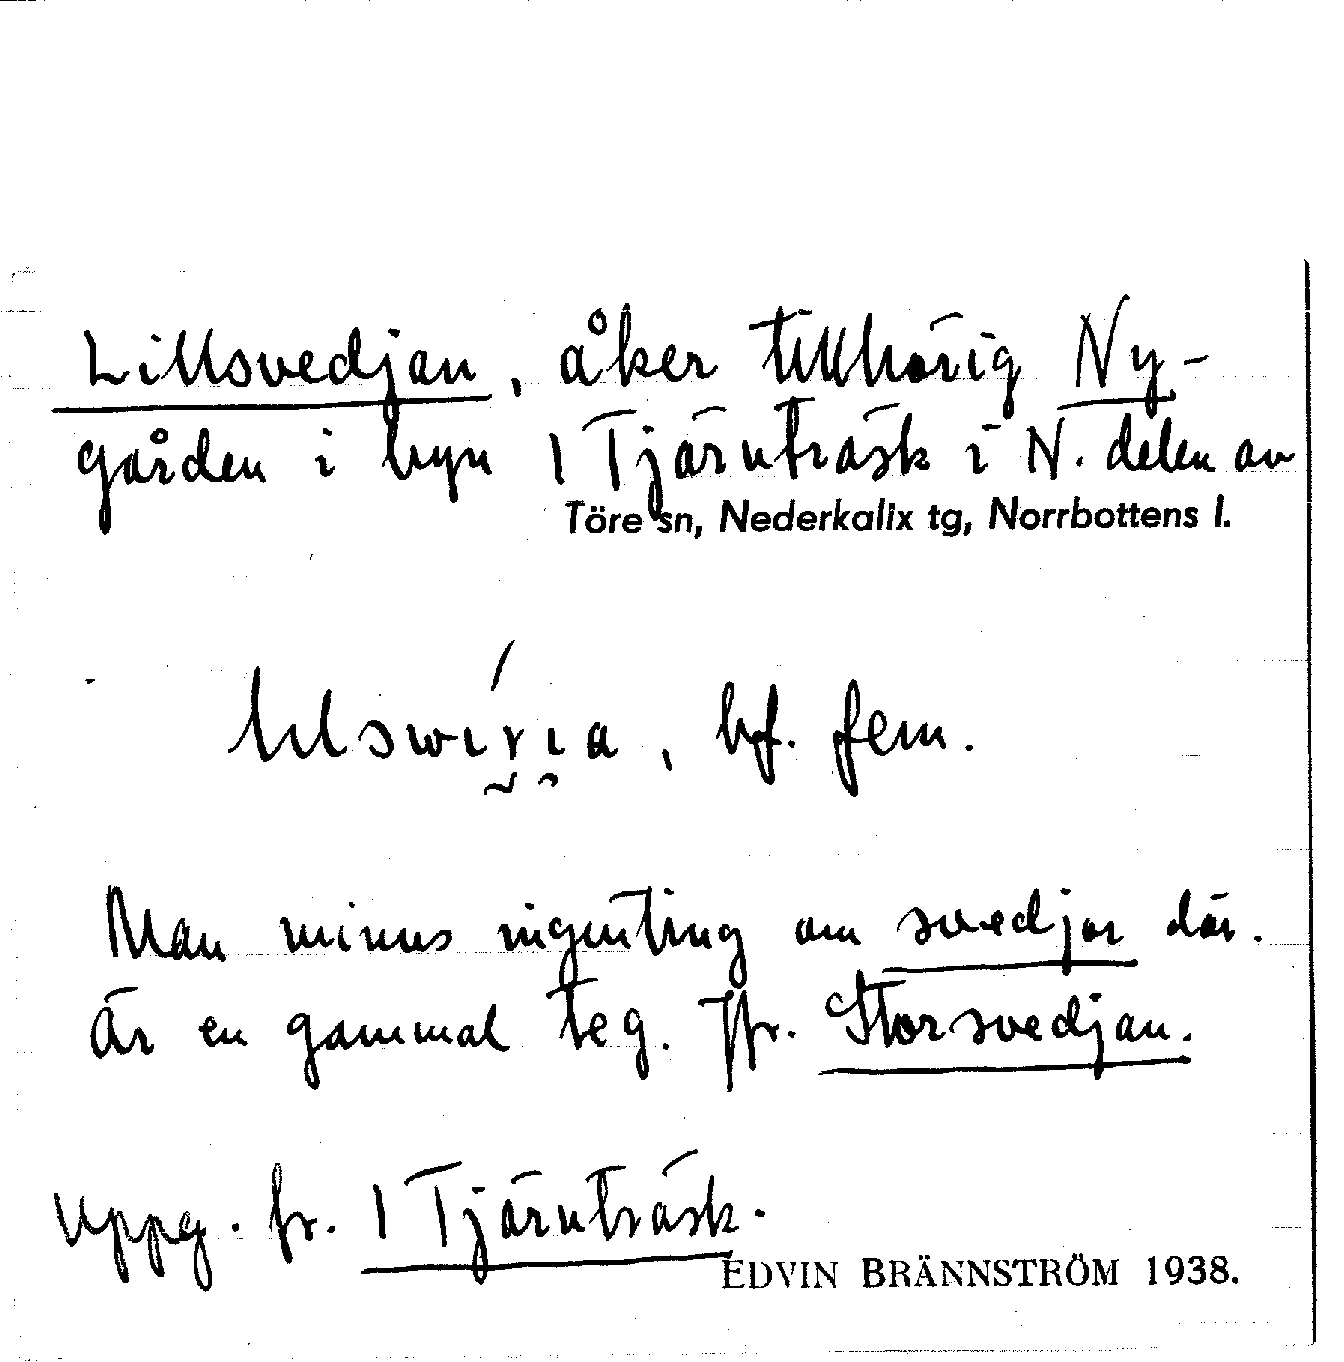 Lillsvedjan, åker tillhörig Ny-
gården i byn 1 Tjärnträsk i N. delen av
Töre sn, Nederkalix tg, Norrbottens l.
bf. fem.
Man minns ingenting om svedjor där.
Är en gammal teg. Jfr. Storsvedjan.
Uppg. fr. 1 Tjärnträsk.
EDVIN BRÄNNSTRÖM 1938.